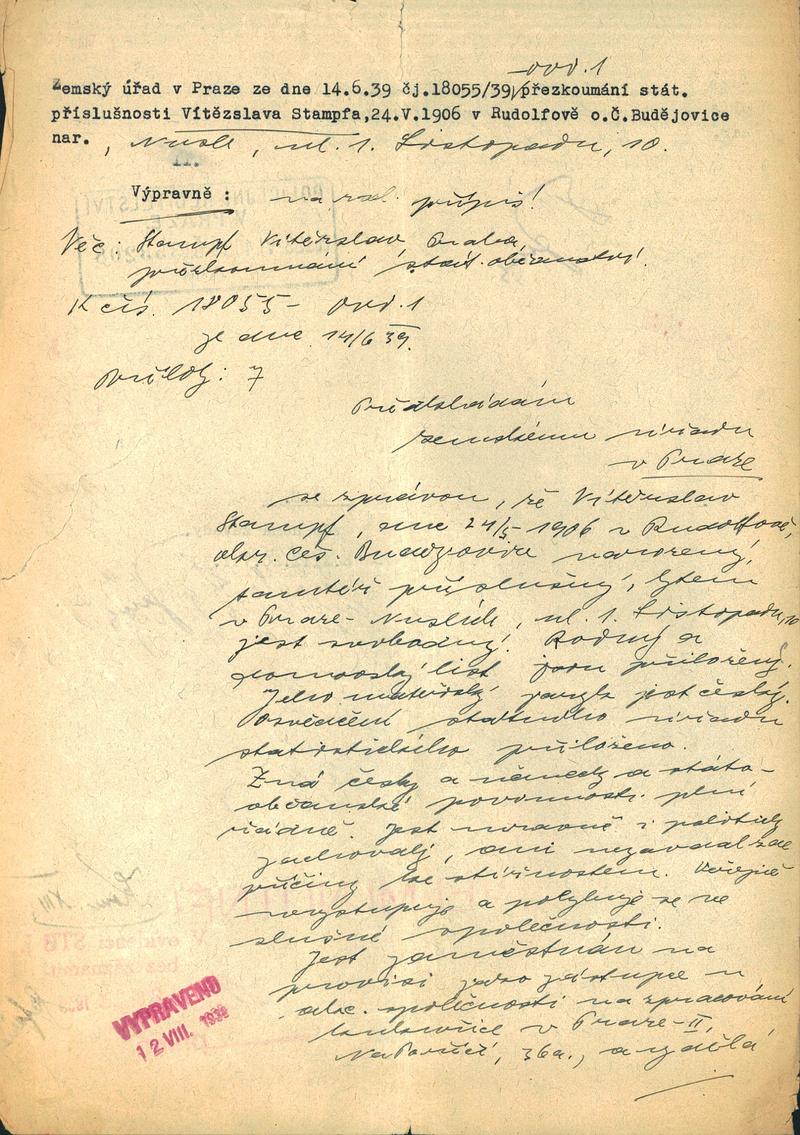 odd.1
Zemský úřad v Praze ze dne 14.6.39 čj.18055/39, přezkoumání stát.
příslušnosti Vítězslava Stampfa,24.V.1906 v Rudolfově o.Č.Budějovice
nar. , Nusle, ul. 1. Listopadu, 10.
II.
Výpravně : na zvl. přípis!
Věc: Stampf Vítězslav, Praha,
přezkoumání stát. občanství.
K čís. 18055 - odd. 1
ze dne 14/6 39.
Příloh: 7
Předkládám
zemskému úřadu
v Praze
se zprávou, že Vítězslav
Stampf, dne 24/5 1906 v Rudolfově,
okr. Čes. Budějovice narozený,
tamtéž příslušný, bytem
v Praze - Nuslích, ul. 1. Listopadu, 10
jest svobodný. Rodný a
domovský list jsou přiloženy.
Jeho mateřský jazyk jest český.
Osvědčení státního úřadu
statistického přiloženo.
Zná česky a německy a státo-
občanské povinnosti plní
řádně. Jest mravně i politicky
zachovalý, ani nezavdal zde
příčiny ke stížnostem. Veřejně
nevystupuje a pohybuje se ve
slušné společnosti.
Jest zaměstnán na
provisi jako zástupce u
akc. společnosti na zpracování
v Praze - II,
Na Poříčí, 36a., a vydělá
VYPRAVENO
12 VIII. 1939
V evidenci STB
bez záznamu.